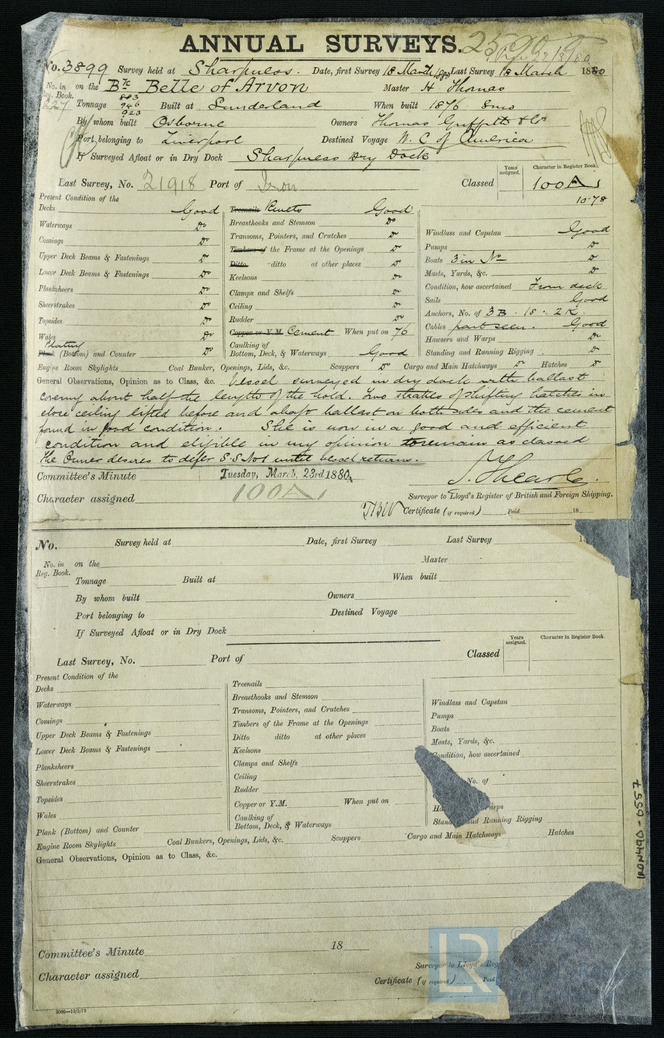 ANNUAL SURVEYS.
No. 3899 Survey held at Sharpness. Date, first Survey 18 March 1880 Last Survey 18 March 1880
No. in Reg. Book. on the Bk Belle of Arvon Master H Thomas
Tonnage 883 946 923 Built at Sunderland When built 1876 8mo
By whom built Osborne Owners Thomas Griffith & Co
Port belonging to Liverpool Destined Voyage W. C of America
If Surveyed Afloat or in Dry Dock Sharpness Dry Dock
Last Survey, No. 21918 Port of Iron Classed Years assigned. Character in Register Book. 100A1
10.78
Present Condition of the
Decks Good Treenails Rivets Good
Waterways Do Breasthooks and Stemson Do Windlass and Capstan Good
Comings Do Transoms, Pointers, and Crutches Do Pumps Do
Upper Deck Beams & Fastenings Do Timbers of the Frame at the Openings Do Boats 3 in No Do
Lower Deck Beams & Fastenings Do Ditto ditto at other places Do Masts, Yards, &c. Do
Planksheers Do Keelsons Do Condition, how ascertained From deck
Sheerstrakes Do Clamps and Shelfs Do Sails Good
Topsides Do Ceiling Do Anchors, No. of 3B . 1S . 2K.
Wales Do Rudder Do Cables part seen. Good
Plating Copper or Y.M. Cement When put on 76 Hawsers and Warps Do
Plank (Bottom) and Counter Do Caulking of Bottom, Deck, & Waterways Good Standing and Running Rigging Do
Engine Room Skylights Coal Bunker, Openings, Lids, &c. Scuppers Do Cargo and Main Hatchways Do Hatches Do
General Observations, Opinion as to Class, &c. Vessel surveyed in dry dock with ballast
covering about half the length of the hold. Two strakes of shifting hatches in
close ceiling lifted before and abaft ballast on both sides and the cement
found in good condition. She is now in a good and efficient
condition and eligible in my opinion to remain as classed
The Owner desires to defer S.S. No1 until vessel returns.
Committee's Minute Tuesday, March 23rd 1880,
Character assigned 100A1
Surveyor to Lloyd's Register of British and Foreign Shipping.
Certificate (if required) Paid 18
No. Survey held at Date, first Survey Last Survey 1
No. in Reg. Book. on the Master
Tonnage Built at When built
By whom built Owners
Port belonging to Destined Voyage
If Surveyed Afloat or in Dry Dock
Last Survey, No. Port of Classed Years assigned. Character in Register Book.
Present Condition of the
Decks Treenails
Waterways Breasthooks and Stemson Windlass and Capstan
Comings Transoms, Pointers, and Crutches Pumps
Upper Deck Beams & Fastenings Timbers of the Frame at the Openings Boats
Lower Deck Beams & Fastenings Ditto ditto at other places Masts, Yards, &c.
Planksheers Keelsons Condition, how ascertained
Sheerstrakes Clamps and Shelfs
Topsides Ceiling No. of
Wales Rudder
Plank (Bottom) and Counter Copper or Y.M. When put on Ha arps
Caulking of Bottom, Deck, & Waterways Standing and Running Rigging
Engine Room Skylights Coal Bunkers, Openings, Lids, &c. Scuppers Cargo and Main Hatchways Hatches
General Observations, Opinion as to Class, &c.
Committee's Minute 18
Character assigned
Surveyor to Lloyd's Reg
Certificate (if required) Paid
LR